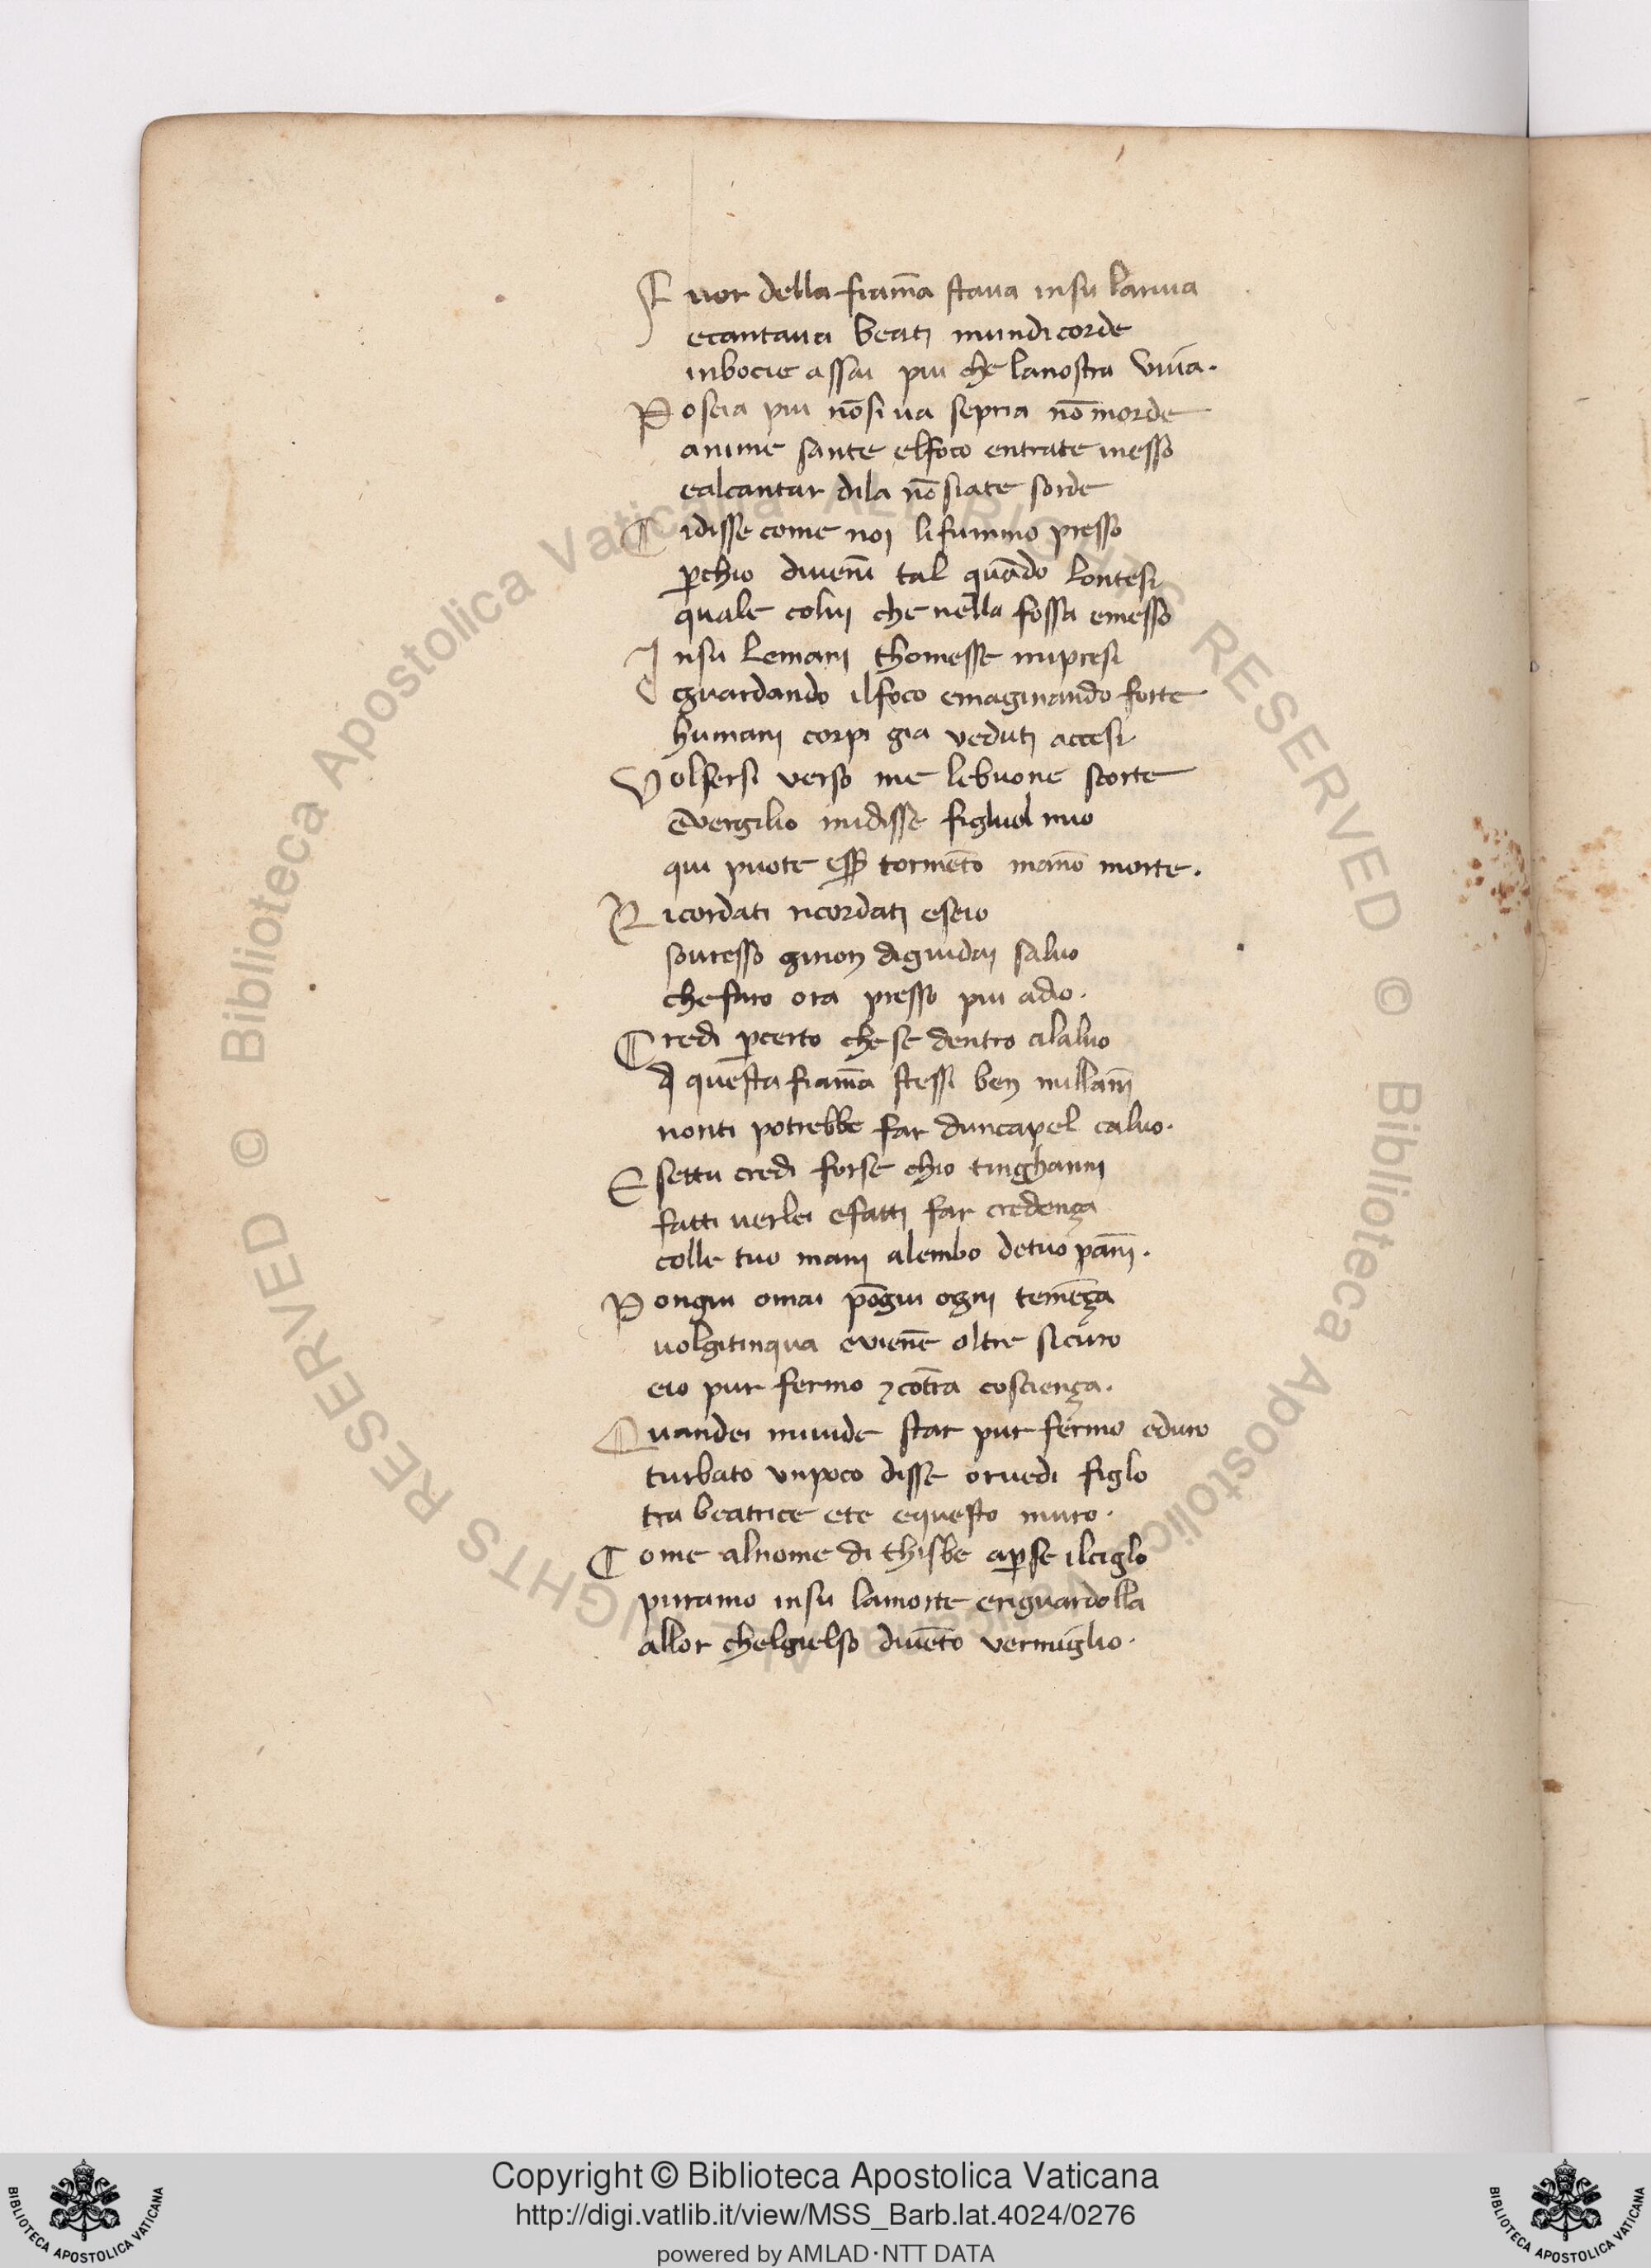 Fuor della fiam̅a staua insu lariua
ecantaua beatj mundicorde
inbocie assai piu che lanostra viua.
Poscia piu no̅siua sepria no̅ morde
anime sante elfoco entrate inesso
ealcantar dila no̅ siate sorde
Cidisse come noj lifummo presso
p̱chio diueni̅ tal qua̅do lontesi
quale coluj che nella fossa emesso
Insu lemanj chomesse mipresi
guardando ilfoco emaginando forte
humanj corpi gia vedutj accesi
Volsersi verso me lebuone scorte
e̅vergilio midisse figluol mio
qui puote ess̱ torme̅to mano̅ morte.
Ricordati ricordatj eseio
souresso girion diguidaj saluo
chefaro ora presso piu adio.
Credi p̱certo che se dentro alaluo
di questa fiam̅a stessi ben millan̅j
nonti potrebbe far duncapel caluo.
E settu credi forse chio tinghanni
fatti uerlei efattj far credença
colle tuo manj alembo detuo pan̅j.
Pongiu omai po̅giu ognj teme̅ça
uolgitinqua eviene̅ oltre sicuro
eio pur fermo ⁊co̅tra cosciença.
Quandei miuide star pur fermo eduro
turbato vnpoco disse oruedi figlo
tra beatrice ete equesto muro.
Come alnome di thisbe ap̱se ilciglo
piramo insu lamorte eriguardolla
allor chelgielso diue̅to vermiglio.
© Biblioteca Apostolica Vaticana ALL RIGHTS RESERVED © Biblioteca Apostolica Vaticana ALL RIGHTS RESERVED
Copyright © Biblioteca Apostolica Vaticana
http://digi.vatlib.it/view/MSS_Barb.lat.4024/0276
powered by AMLAD·NTT DATA
BIBLIOTECA APOSTOLICA VATICANA
BIBLIOTECA APOSTOLICA VATICANA